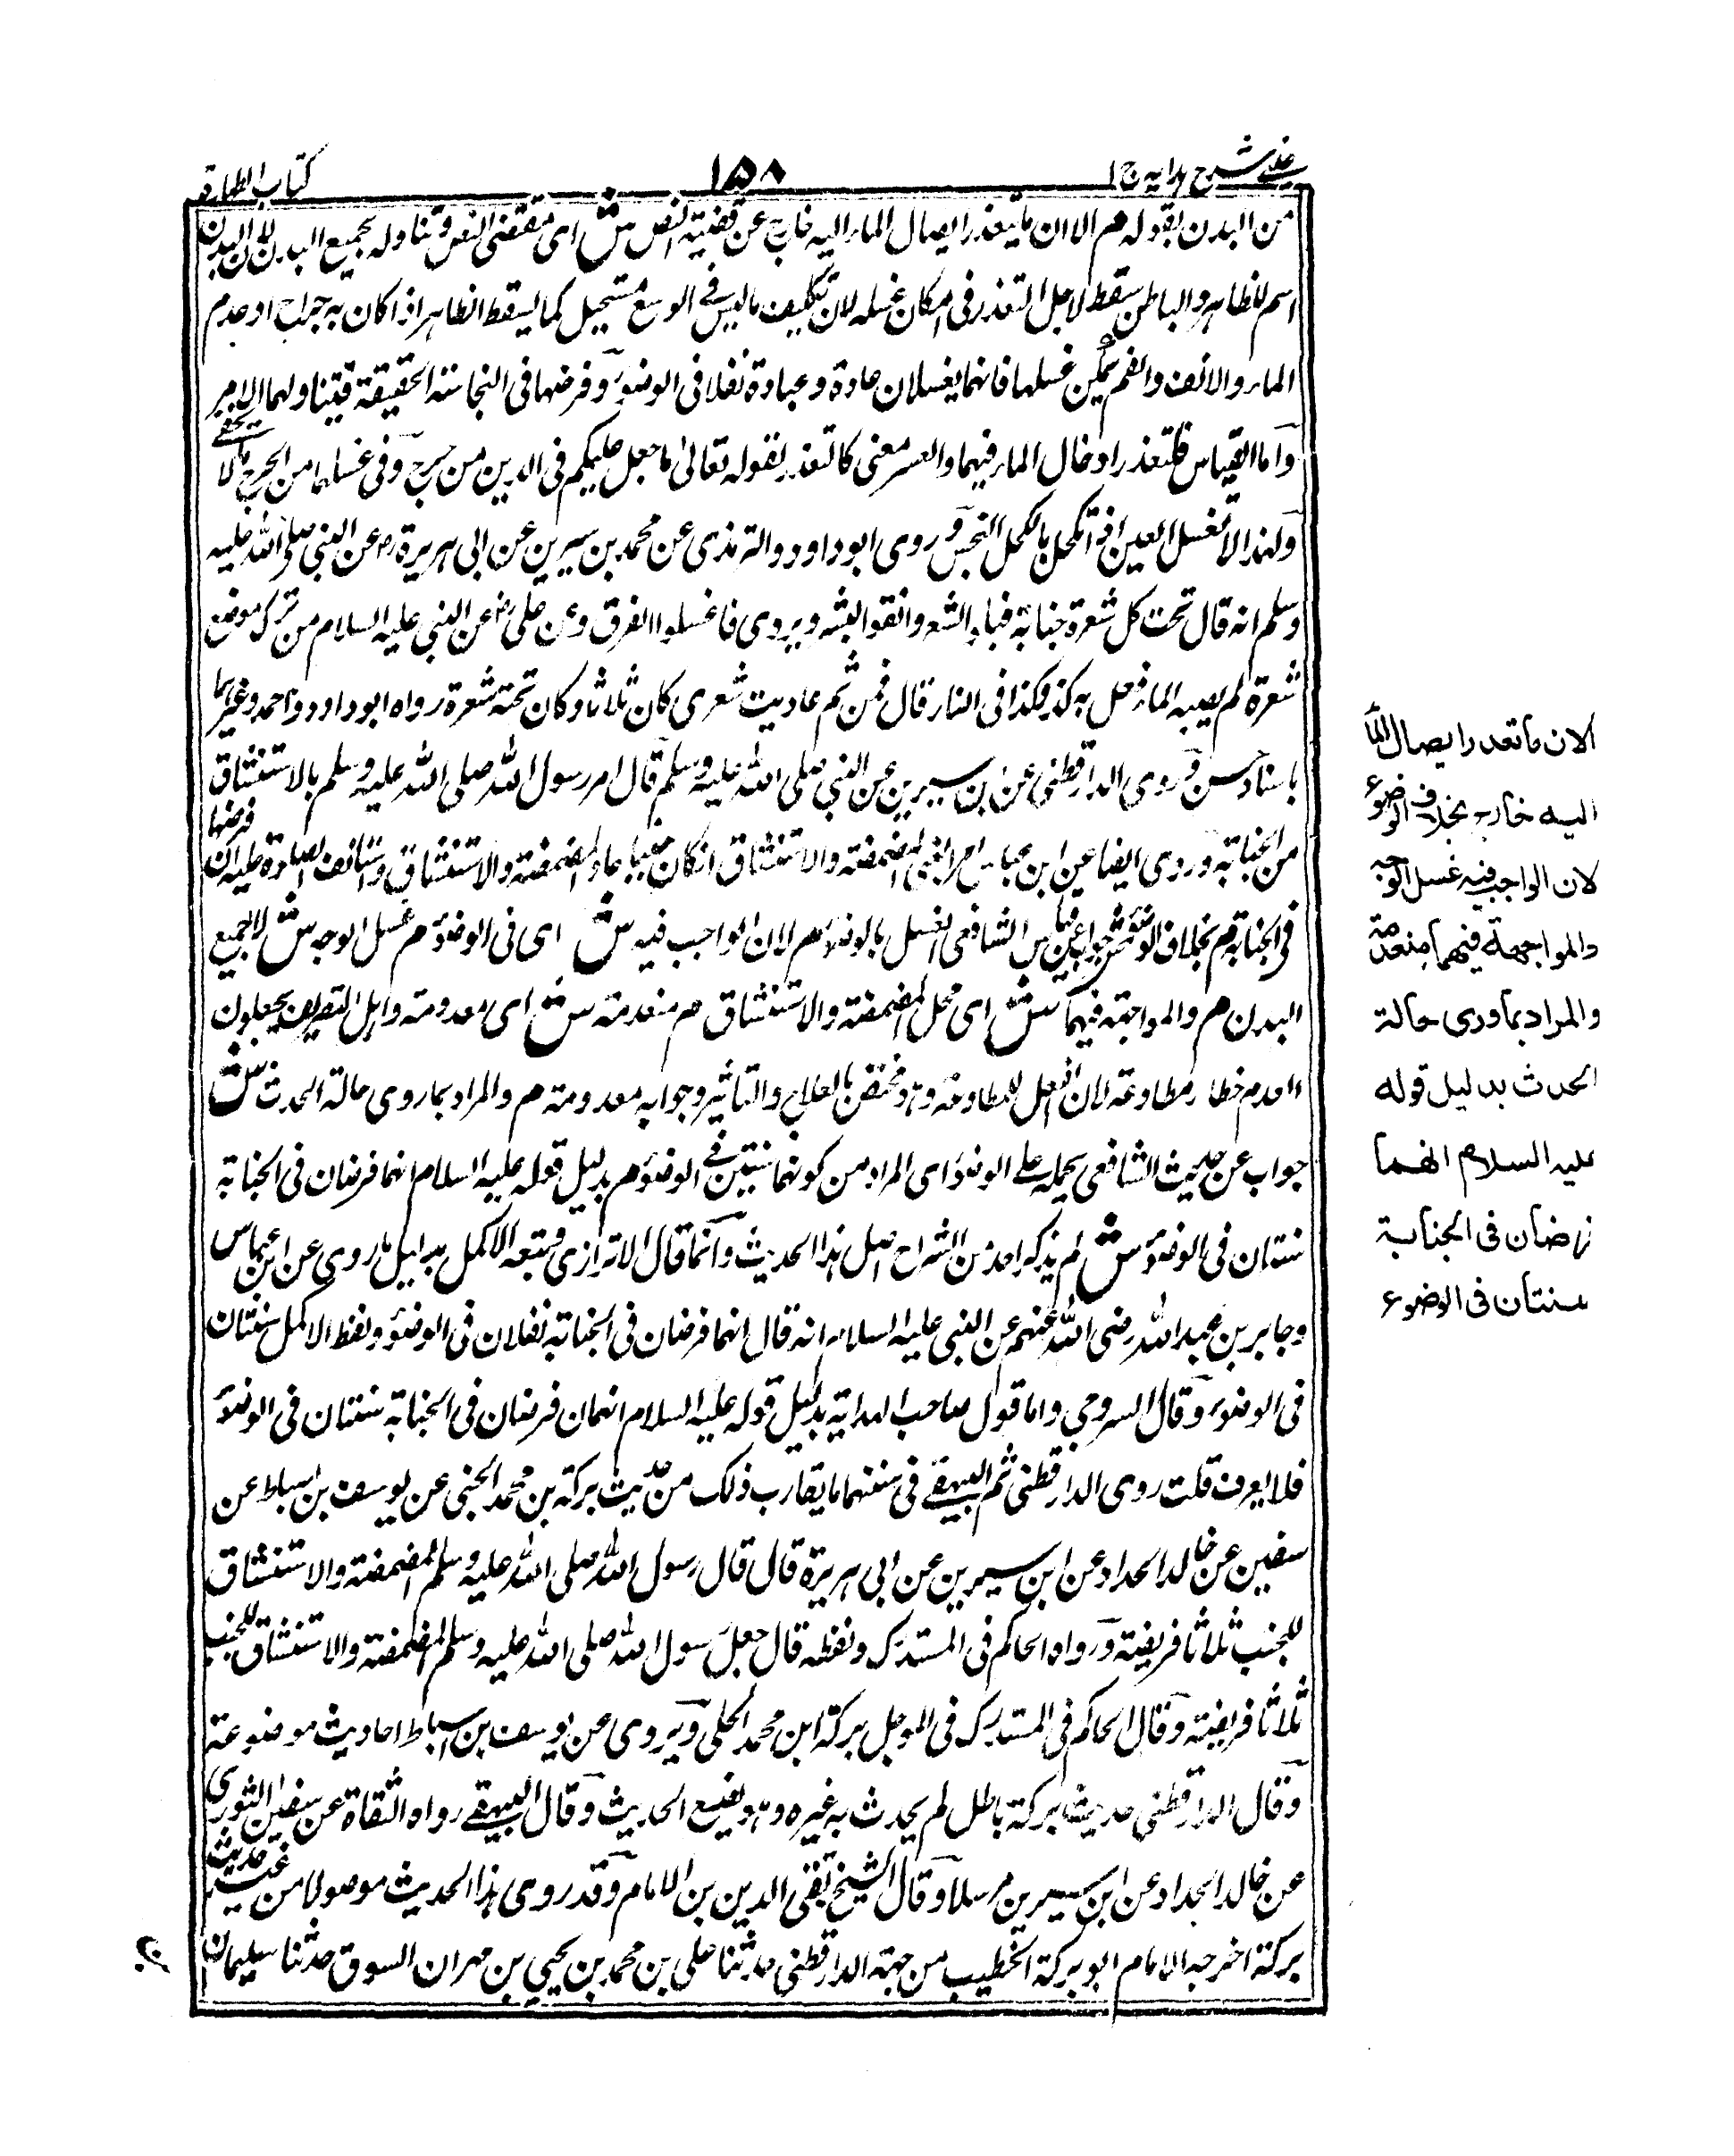 عینی شرح ہدایہ ج ا
۱۵۸
کتاب الطہارة
من البدن بقوله م الا ان ما يتعذر ايصال الماء اليه خارج عن قضية النص ش اى مقتضى النص وتناوله لجميع البدن لان البدن
اسم للظاهر والباطن سقط لاجل التعذر فى امكان غسله لان تكليف ما ليس فى الوسع مستحيل كما يسقط الظاهر اذا كان به جراح او عدم
الماء والانف والفم يمكن غسلهما فانهما يغسلان عادة وعبادة نفلا فى الوضوء وفرضها فى النجاسة الحقيقة فيتناولهما الامر
واما القياس فلتعذر ادخال الماء فيهما والعسر معنى كالتعذر لقوله تعالى ما جعل عليكم فى الدين من حرج وفى غسلهما من الحرج ما لا يخفى
ولهذا لا تغسل العين اذا تكحل بالكحل النجس وروى ابو داود والترمذى عن محمد بن سيرين عن ابى هريرة رض عن النبي صلى الله عليه
وسلم انه قال تحت كل شعرة جنابة فبلوا الشعر وانقوا البشرة ويروى فاغسلوا الفرق وعن على رض عن النبي عليه السلام من ترك موضع
شعرة لم يصبه الماء فعل به كذا وكذا فى النار قال فمن ثم عاديت شعرى كان ثلاثا وكان تحته شعرة رواه ابو داود واحمد وغيرهما
باسناد حسن وروى الدارقطنى عن بن سيرين عن النبي صلى الله عليه وسلم قال امر رسول الله صلى الله عليه وسلم بالاستنشاق
من الجنابة وروى ايضا عن ابن عباس امر النبي المضمضة والاستنشاق ان كان جنبا اعاد المضمضة والاستنشاق واستأنف الصلوة فدل ان فرضها
فى الجنابة م بخلاف الوضوء ش جواب عن قياس الشافعى الغسل بالوضوء م لان الواجب فيه ش اى فى الوضوء م غسل الوجه ش لا جميع
البدن م والمواجهة فيهما ش اى محل المضمضة والاستنشاق م منعدمة ش اى معدومة واهل التصريف يجعلون
انعدم خطاء مطاوعة لان انفعل للمطاوعة وهو مختص بالعلاج والتاثير وجوابه معدومة م والمراد بما روى حالة الحدث ش
جواب عن حديث الشافعى يحمله على الوضوء اى المراد من كونهما سنتين فى الوضوء م بدليل قوله عليه السلام انهما فرضان فى الجنابة
سنتان فى الوضوء ش لم يذكر احد من الشراح اصل هذا الحديث وانما قال الاترازى وتبعه الاكمل بدليل ما روى عن ابن عباس
وجابر بن عبد الله رضى الله عنهم عن النبي عليه السلام انه قال انهما فرضان فى الجنابة نفلان فى الوضوء ولفظ الاكمل سنتان
فى الوضوء وقال السروجي واما قول صاحب الهداية بدليل قوله عليه السلام انهما فرضان فى الجنابة سنتان فى الوضوء
فلا يعرف قلت روى الدارقطنى ثم البيهقى فى سننهما ما يقارب ذلك من حديث بركة بن محمد الحلبى عن يوسف بن اسباط عن
سفين عن خالد الحداد عن ابن سيرين عن ابى هريرة قال قال رسول الله صلى الله عليه وسلم المضمضة والاستنشاق
للجنب ثلاثا فريضة ورواه الحاكم فى المستدرك ولفظه قال جعل رسول الله صلى الله عليه وسلم المضمضة والاستنشاق للجنب
ثلاثا فريضة وقال الحاكم فى المستدرك فى المدخل بركة ابن محمد الحلبى يروى عن يوسف بن اسباط احاديث موضوعة
وقال الدارقطنى حديث بركة باطل لم يحدث به غيره وهو يضع الحديث وقال البيهقى رواه الثقاة عن سفين الثورى
عن خالد الحداد عن ابن سيرين مرسلا وقال الشيخ تقى الدين بن الامام وقد روى هذا الحديث موصولا من غير حديث
بركة اخرجه الامام ابو بركة الخطيب من جهة الدارقطنى حدثنا على بن محمد بن يحيى بن مهران السوق حدثنا سليمان
الا ان ما تعذر ايصال الماء
اليه خارج بخلاف الوضوء
لان الواجب فيه غسل الوجه
والمواجهة فيهما منعدمة
والمراد بما روى حالة
الحدث بدليل قوله
عليه السلام انهما
فرضان فى الجنابة
سنتان فى الوضوء